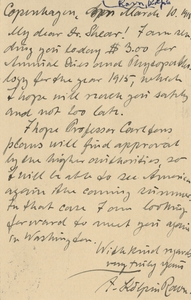 Copenhagen, March 10. 
My dear Dr. Shear! I am sen-
ding you today $ 3.00 for
Annual Dues and Phytopatho-
logy for the year 1915, which
I hope will reach you safely
and not too late.
I hope Professor Carltons
plans will find approval
by the higher authorities, so
I will be able to see America
again the coming summer.
In that case I am looking
forward to meet you again
in Washington.
With kind regards
very truly yours
F. Kölpin Ravn.